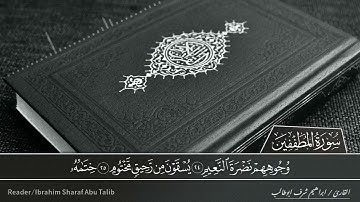 سورة المطففين
وُجُوهِهِمْ نَضْرَةَ ٱلنَّعِيمِ ٢٤ يُسْقَوْنَ مِن رَّحِيقٍ مَّخْتُومٍ ٢٥ خِتَـٰمُهُۥ
Reader/Ibrahim Sharaf Abu Talib
القارئ / ابراهيم شرف ابوطالب